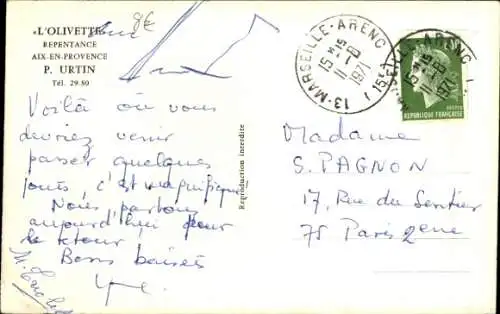 «L'OLIVETTE»
REPENTANCE
AIX-EN-PROVENCE
P. URTIN
Tél. 29.80
8€
Voilà où vous
devriez venir
passer quelques
jours, c'est magnifique
Nous partons
aujourd'hui pour
le retour
Bons baisers
Reproduction interdite
13 - MARSEILLE-ARENC (15e)
15H15
11-8
1971
REPUBLIQUE FRANÇAISE
Madame
S. PAGNON
17, Rue du Sentier
75 Paris 2eme